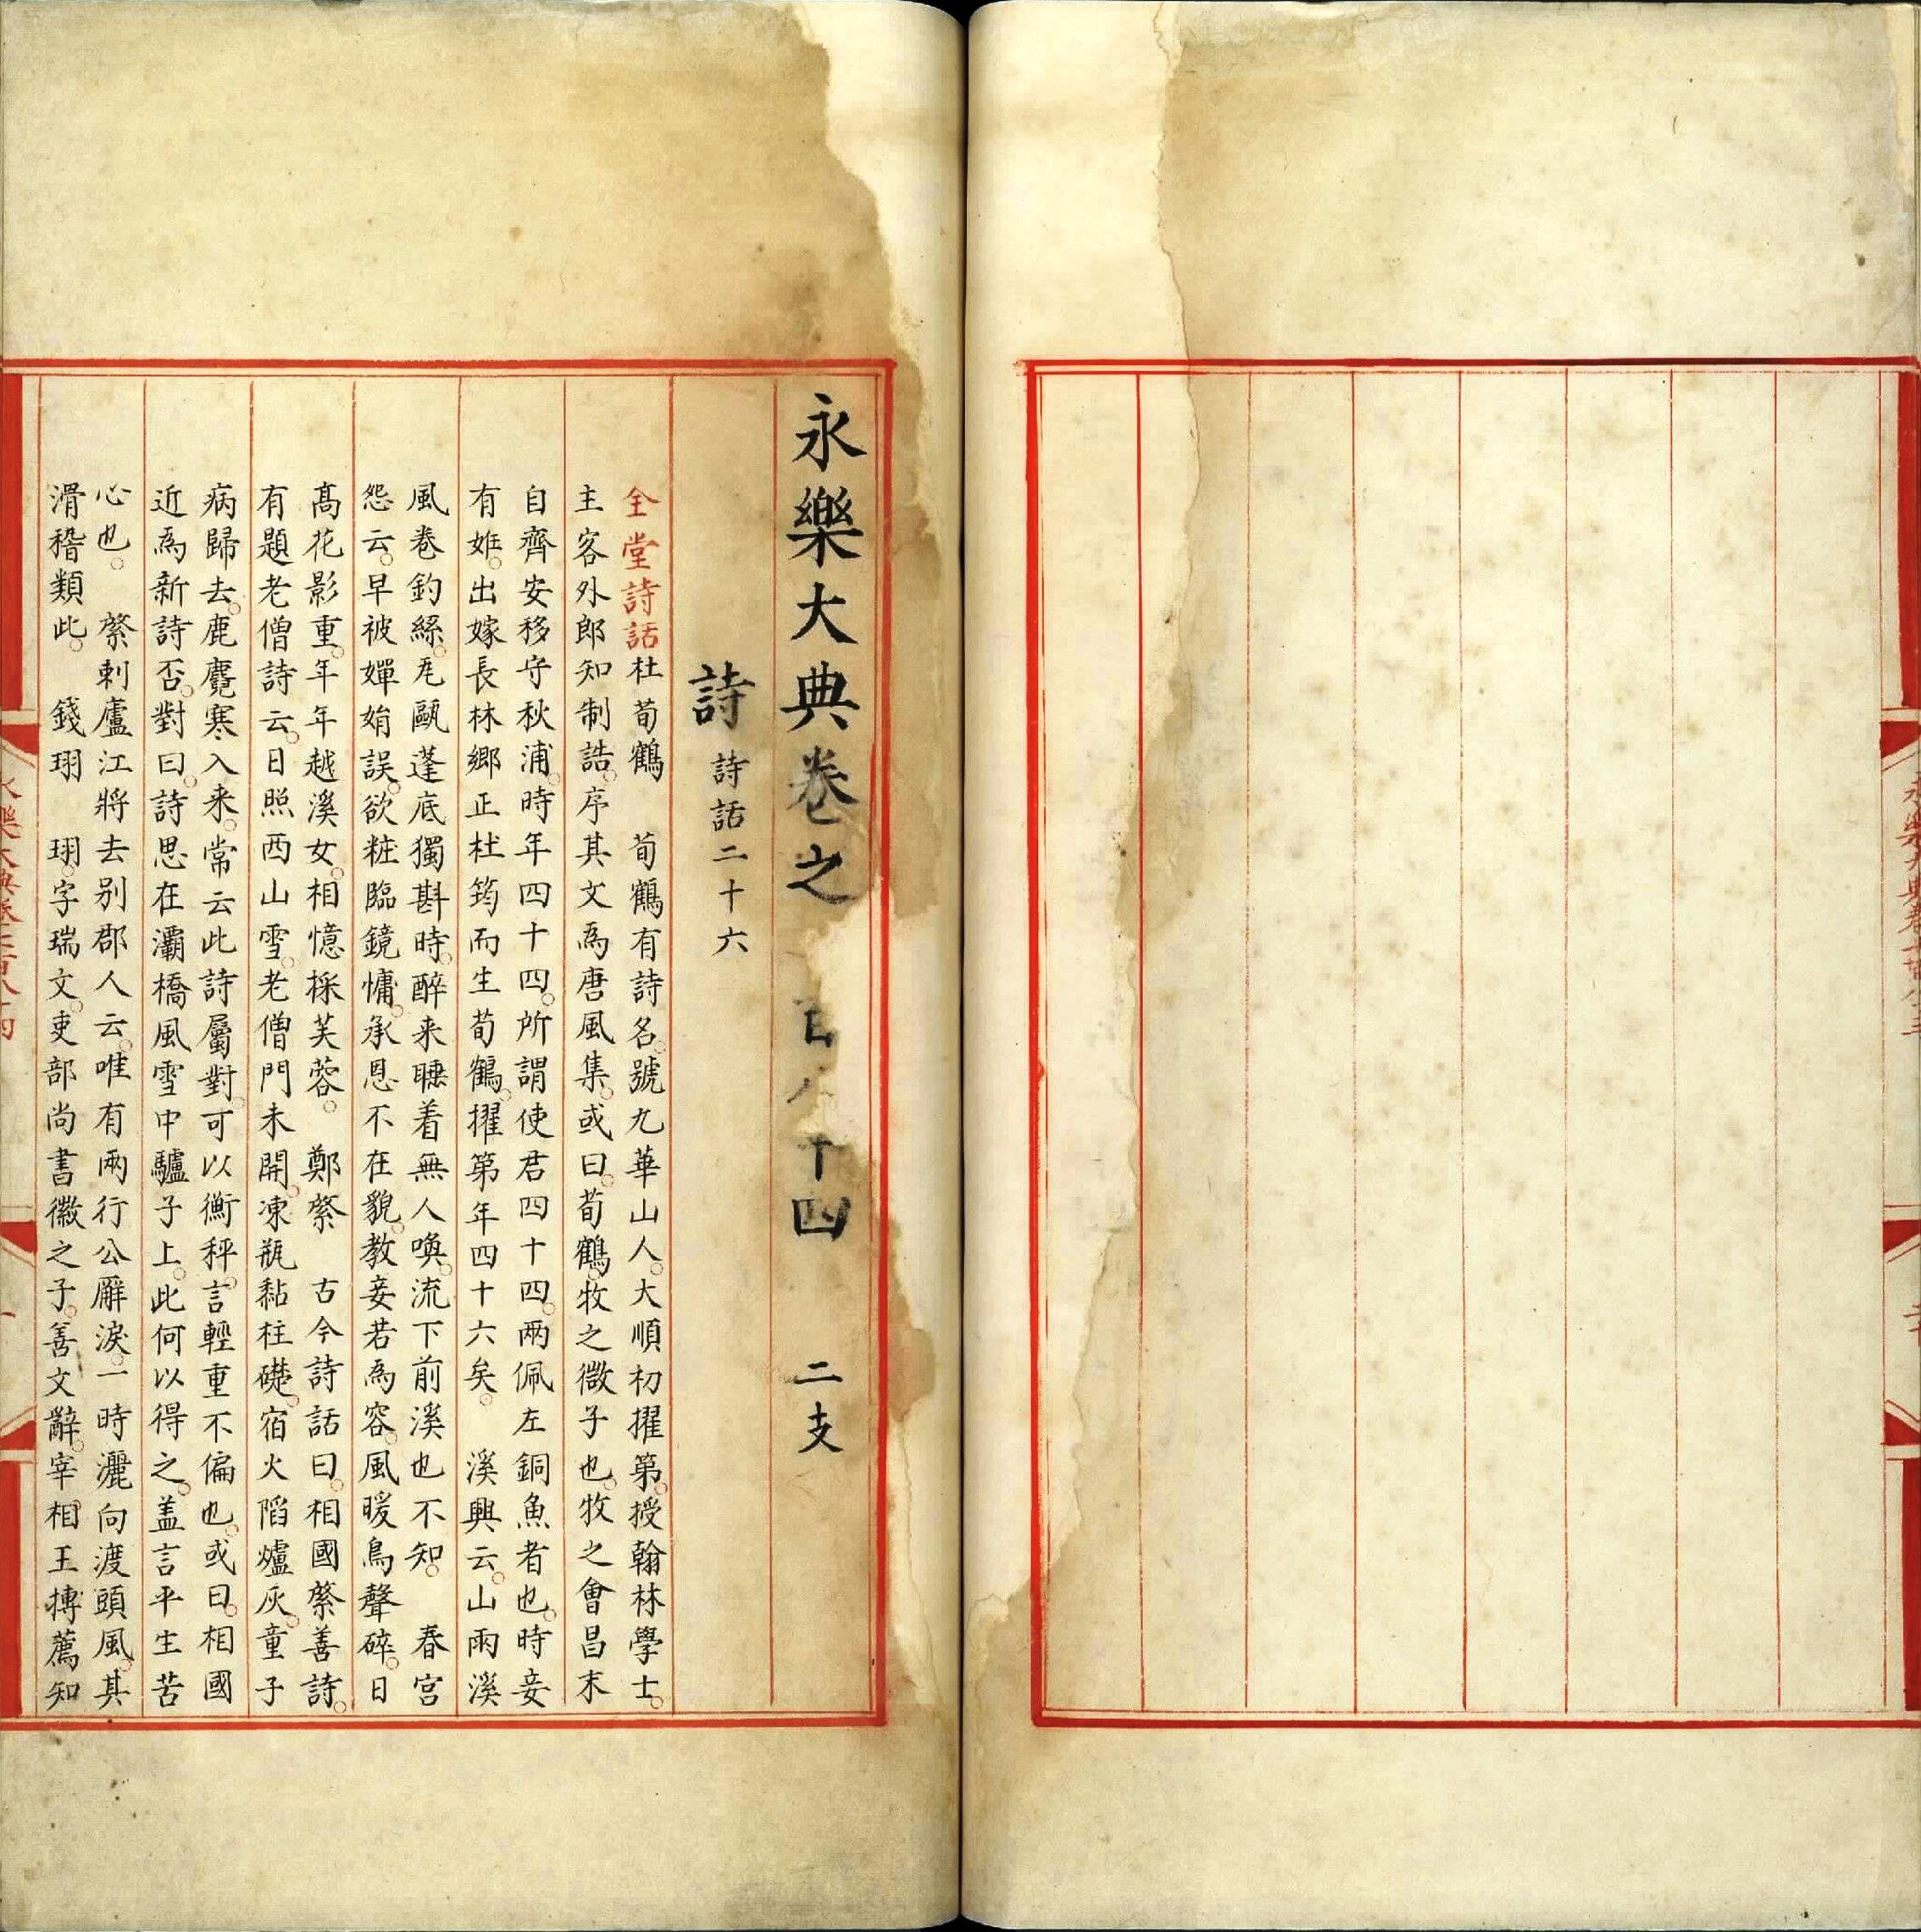 永樂大典卷之 十四 二支
詩 詩話二十六
全堂詩話杜荀鶴 荀鶴有詩名號九華山人大順初擢第授翰林學士
主客外郎知制誥序其文爲唐風集或曰荀鶴牧之微子也牧之會昌末
自齊安移守秋浦時年四十四所謂使君四十四兩佩左銅魚者也時妾
有姙出嫁長林鄉正杜筠而生荀鶴擢第年四十六矣 溪興云山雨溪
風卷釣絲瓦甌蓬底獨斟時醉来睡着無人喚流下前溪也不知 春宮
怨云早被嬋娟誤欲粧臨鏡慵承恩不在貌教妾若爲容風暖鳥聲碎日
高花影重年年越溪女相憶採芙蓉 鄭綮 古今詩話曰相國綮善詩
有題老僧詩云日照西山雪老僧門未開凍瓶黏柱礎宿火陷爐灰童子
病歸去鹿麑寒入来常云此詩屬對可以衡秤言輕重不偏也或曰相國
近爲新詩否對曰詩思在灞橋風雪中驢子上此何以得之蓋言平生苦
心也 綮刺廬江將去别郡人云唯有兩行公廨淚一時灑向渡頭風其
滑稽類此 錢珝 珝字瑞文吏部尚書徽之子善文辭宰相王摶薦知